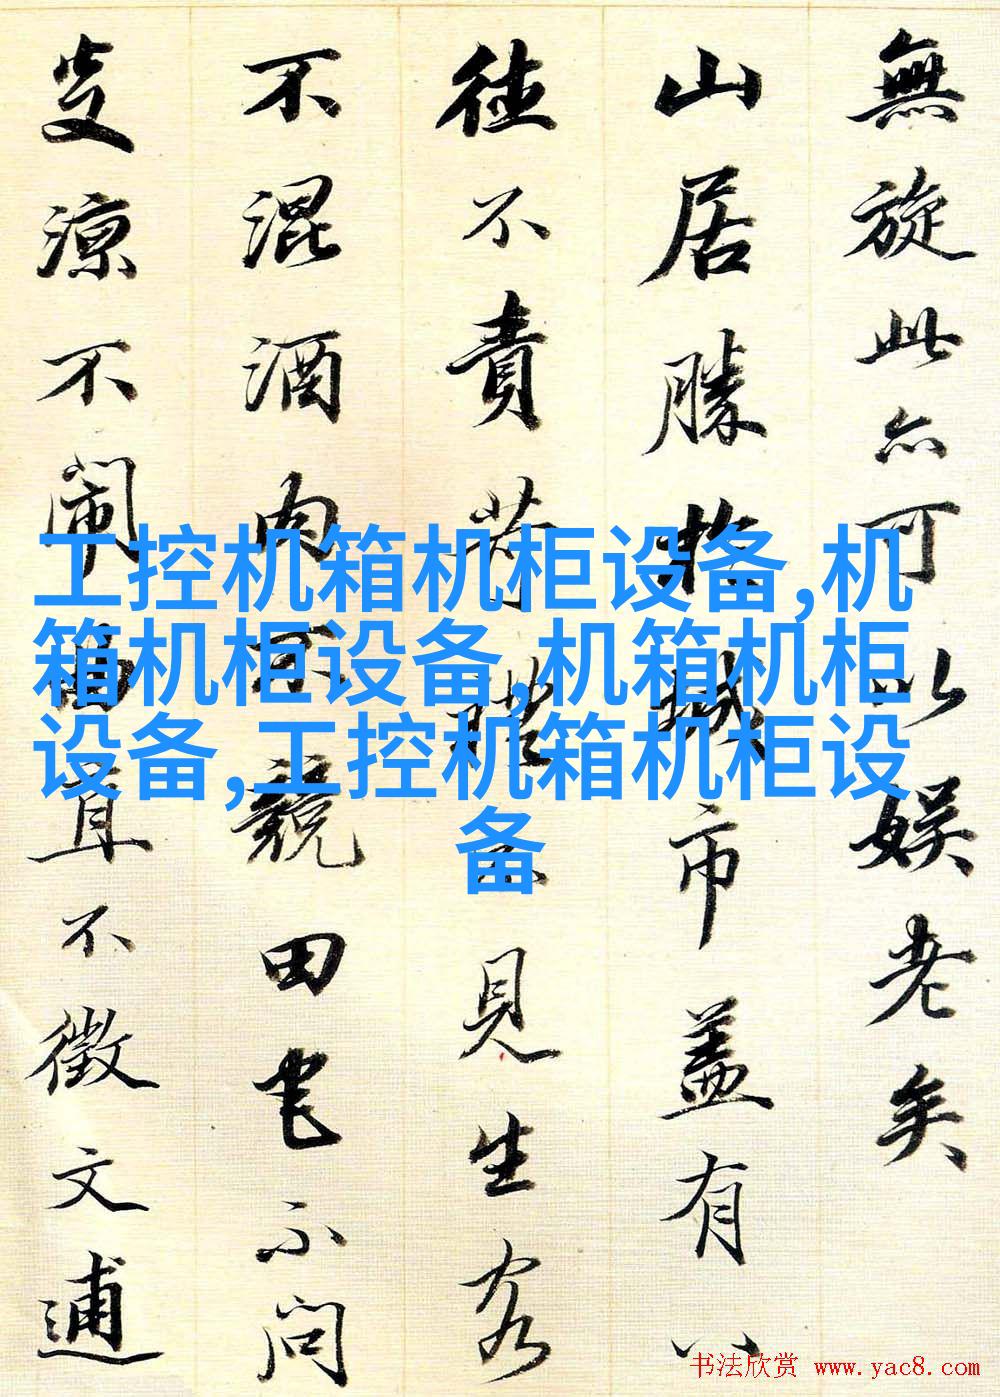 無旋此亦可以娱老矣
山居勝於城市盖有八
德不責苛禮不見生客
不混酒肉不競田宅不问
炎涼不闹曲直不徵文逋
工控机箱机柜设备,机
箱机柜设备,机箱机柜
设备,工控机箱机柜设
备
书法欣赏 www.yac8.com